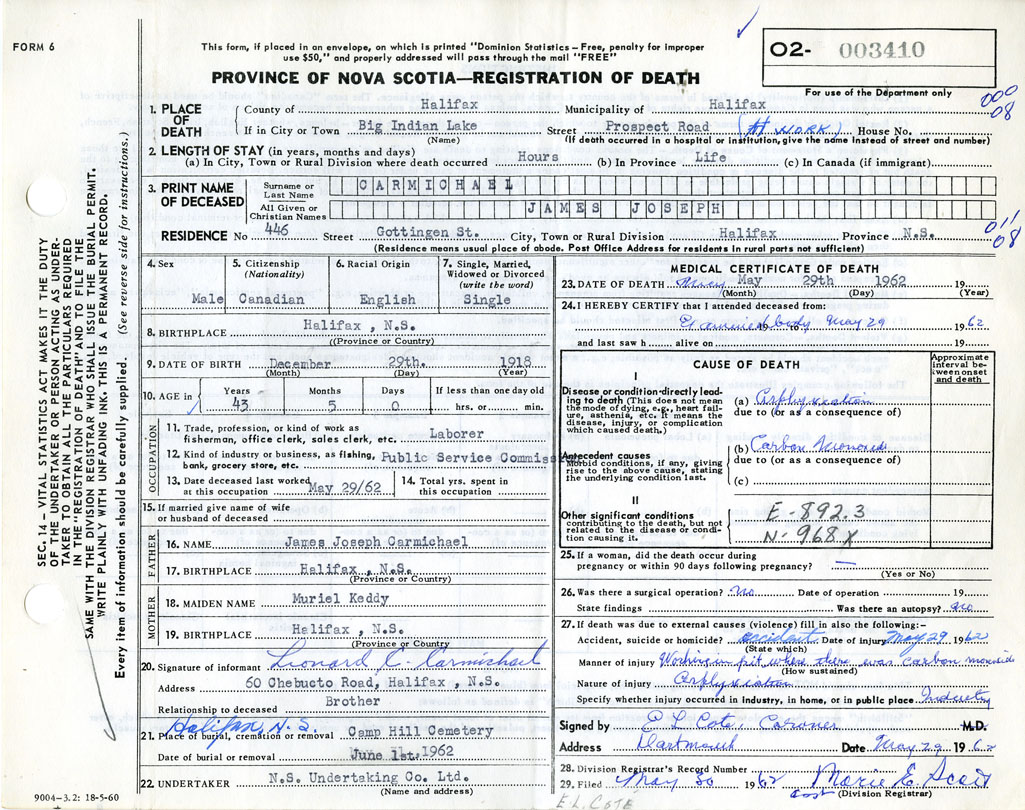 FORM 6
This form, if placed in an envelope, on which is printed "Dominion Statistics – Free, penalty for improper
use $50," and properly addressed will pass through the mail "FREE"
PROVINCE OF NOVA SCOTIA—REGISTRATION OF DEATH
O2- 003410
For use of the Department only
000
08
1. PLACE OF DEATH
County of Halifax Municipality of Halifax
If in City or Town Big Indian Lake Street Prospect Road (At WORK) House No.
(Name) (If death occurred in a hospital or institution, give the name instead of street and number)
2. LENGTH OF STAY (in years, months and days)
(a) In City, Town or Rural Division where death occurred Hours (b) In Province Life (c) In Canada (if immigrant)
3. PRINT NAME OF DECEASED
Surname or Last Name CARMICHAEL
All Given or Christian Names JAMES JOSEPH
011
08
RESIDENCE No 446 Street Gottingen St. City, Town or Rural Division Halifax Province N.S.
(Residence means usual place of abode. Post Office Address for residents in rural parts not sufficient)
4. Sex Male
5. Citizenship (Nationality) Canadian
6. Racial Origin English
7. Single, Married, Widowed or Divorced (write the word) Single
8. BIRTHPLACE Halifax , N.S.
((Province or Country)
9. DATE OF BIRTH December 29th. 1918
(Month) (Day) (Year)
10. AGE in Years 43 Months 5 Days 0 If less than one day old hrs. or min.
OCCUPATION
11. Trade, profession, or kind of work as
fisherman, office clerk, sales clerk, etc. Laborer
12. Kind of industry or business, as fishing,
bank, grocery store, etc. Public Service Commiss
13. Date deceased last worked
at this occupation May 29/62
14. Total yrs. spent in
this occupation
15. If married give name of wife
or husband of deceased
FATHER
16. NAME James Joseph Carmichael
17. BIRTHPLACE Halifax , N.S.
(Province or Country)
MOTHER
18. MAIDEN NAME Muriel Keddy
19. BIRTHPLACE Halifax , N.S.
(Province or Country)
20. Signature of informant Leonard C. Carmichael
Address 60 Chebucto Road, Halifax , N.S.
Relationship to deceased Brother
Halifax, N.S.
21. Place of burial, cremation or removal Camp Hill Cemetery
Date of burial or removal June 1st, 1962
22. UNDERTAKER N.S. Undertaking Co. Ltd.
(Name and address)
9004-3.2: 18-5-60
MEDICAL CERTIFICATE OF DEATH
23. DATE OF DEATH May 29th 1962 19
(Month) (Day) (Year)
24. I HEREBY CERTIFY that I attended deceased from:
Examined body May 29 1962
and last saw h alive on 19
CAUSE OF DEATH
Approximate interval between onset and death
I
Disease or condition directly leading to death (This does not mean the mode of dying, e.g., heart failure, asthenia, etc. It means the disease, injury, or complication which caused death.)
(a) Asphyxiation
due to (or as a consequence of)
Antecedent causes
Morbid conditions, if any, giving rise to the above cause, stating the underlying condition last.
(b) Carbon Monoxide
due to (or as a consequence of)
(c)
II
Other significant conditions
contributing to the death, but not related to the disease or condition causing it.
E-892.3
N-968X
25. If a woman, did the death occur during
pregnancy or within 90 days following pregnancy? —
(Yes or No)
26. Was there a surgical operation? No Date of operation 19
State findings Was there an autopsy? No
27. If death was due to external causes (violence) fill in also the following:-
Accident, suicide or homicide? accident Date of injury May 29 1962
(State which)
Manner of injury Working in pit where there was carbon monoxide
(How sustained)
Nature of injury Asphyxiation
Specify whether injury occurred in Industry, in home, or in public place Industry
Signed by E L Cote, Coroner M.D.
Address Dartmouth Date May 29 1962
28. Division Registrar's Record Number
29. Filed May 30 1962 Marie E. Scott
(Division Registrar)
E.L. COTE
SEC. 14 – VITAL STATISTICS ACT MAKES IT THE DUTY
OF THE UNDERTAKER OR PERSON ACTING AS UNDER-
TAKER TO OBTAIN ALL THE PARTICULARS REQUIRED
IN THE "REGISTRATION OF DEATH" AND TO FILE THE
SAME WITH THE DIVISION REGISTRAR WHO SHALL ISSUE THE BURIAL PERMIT.
WRITE PLAINLY WITH UNFADING INK. THIS IS A PERMANENT RECORD.
Every item of information should be carefully supplied. (See reverse side for instructions.)